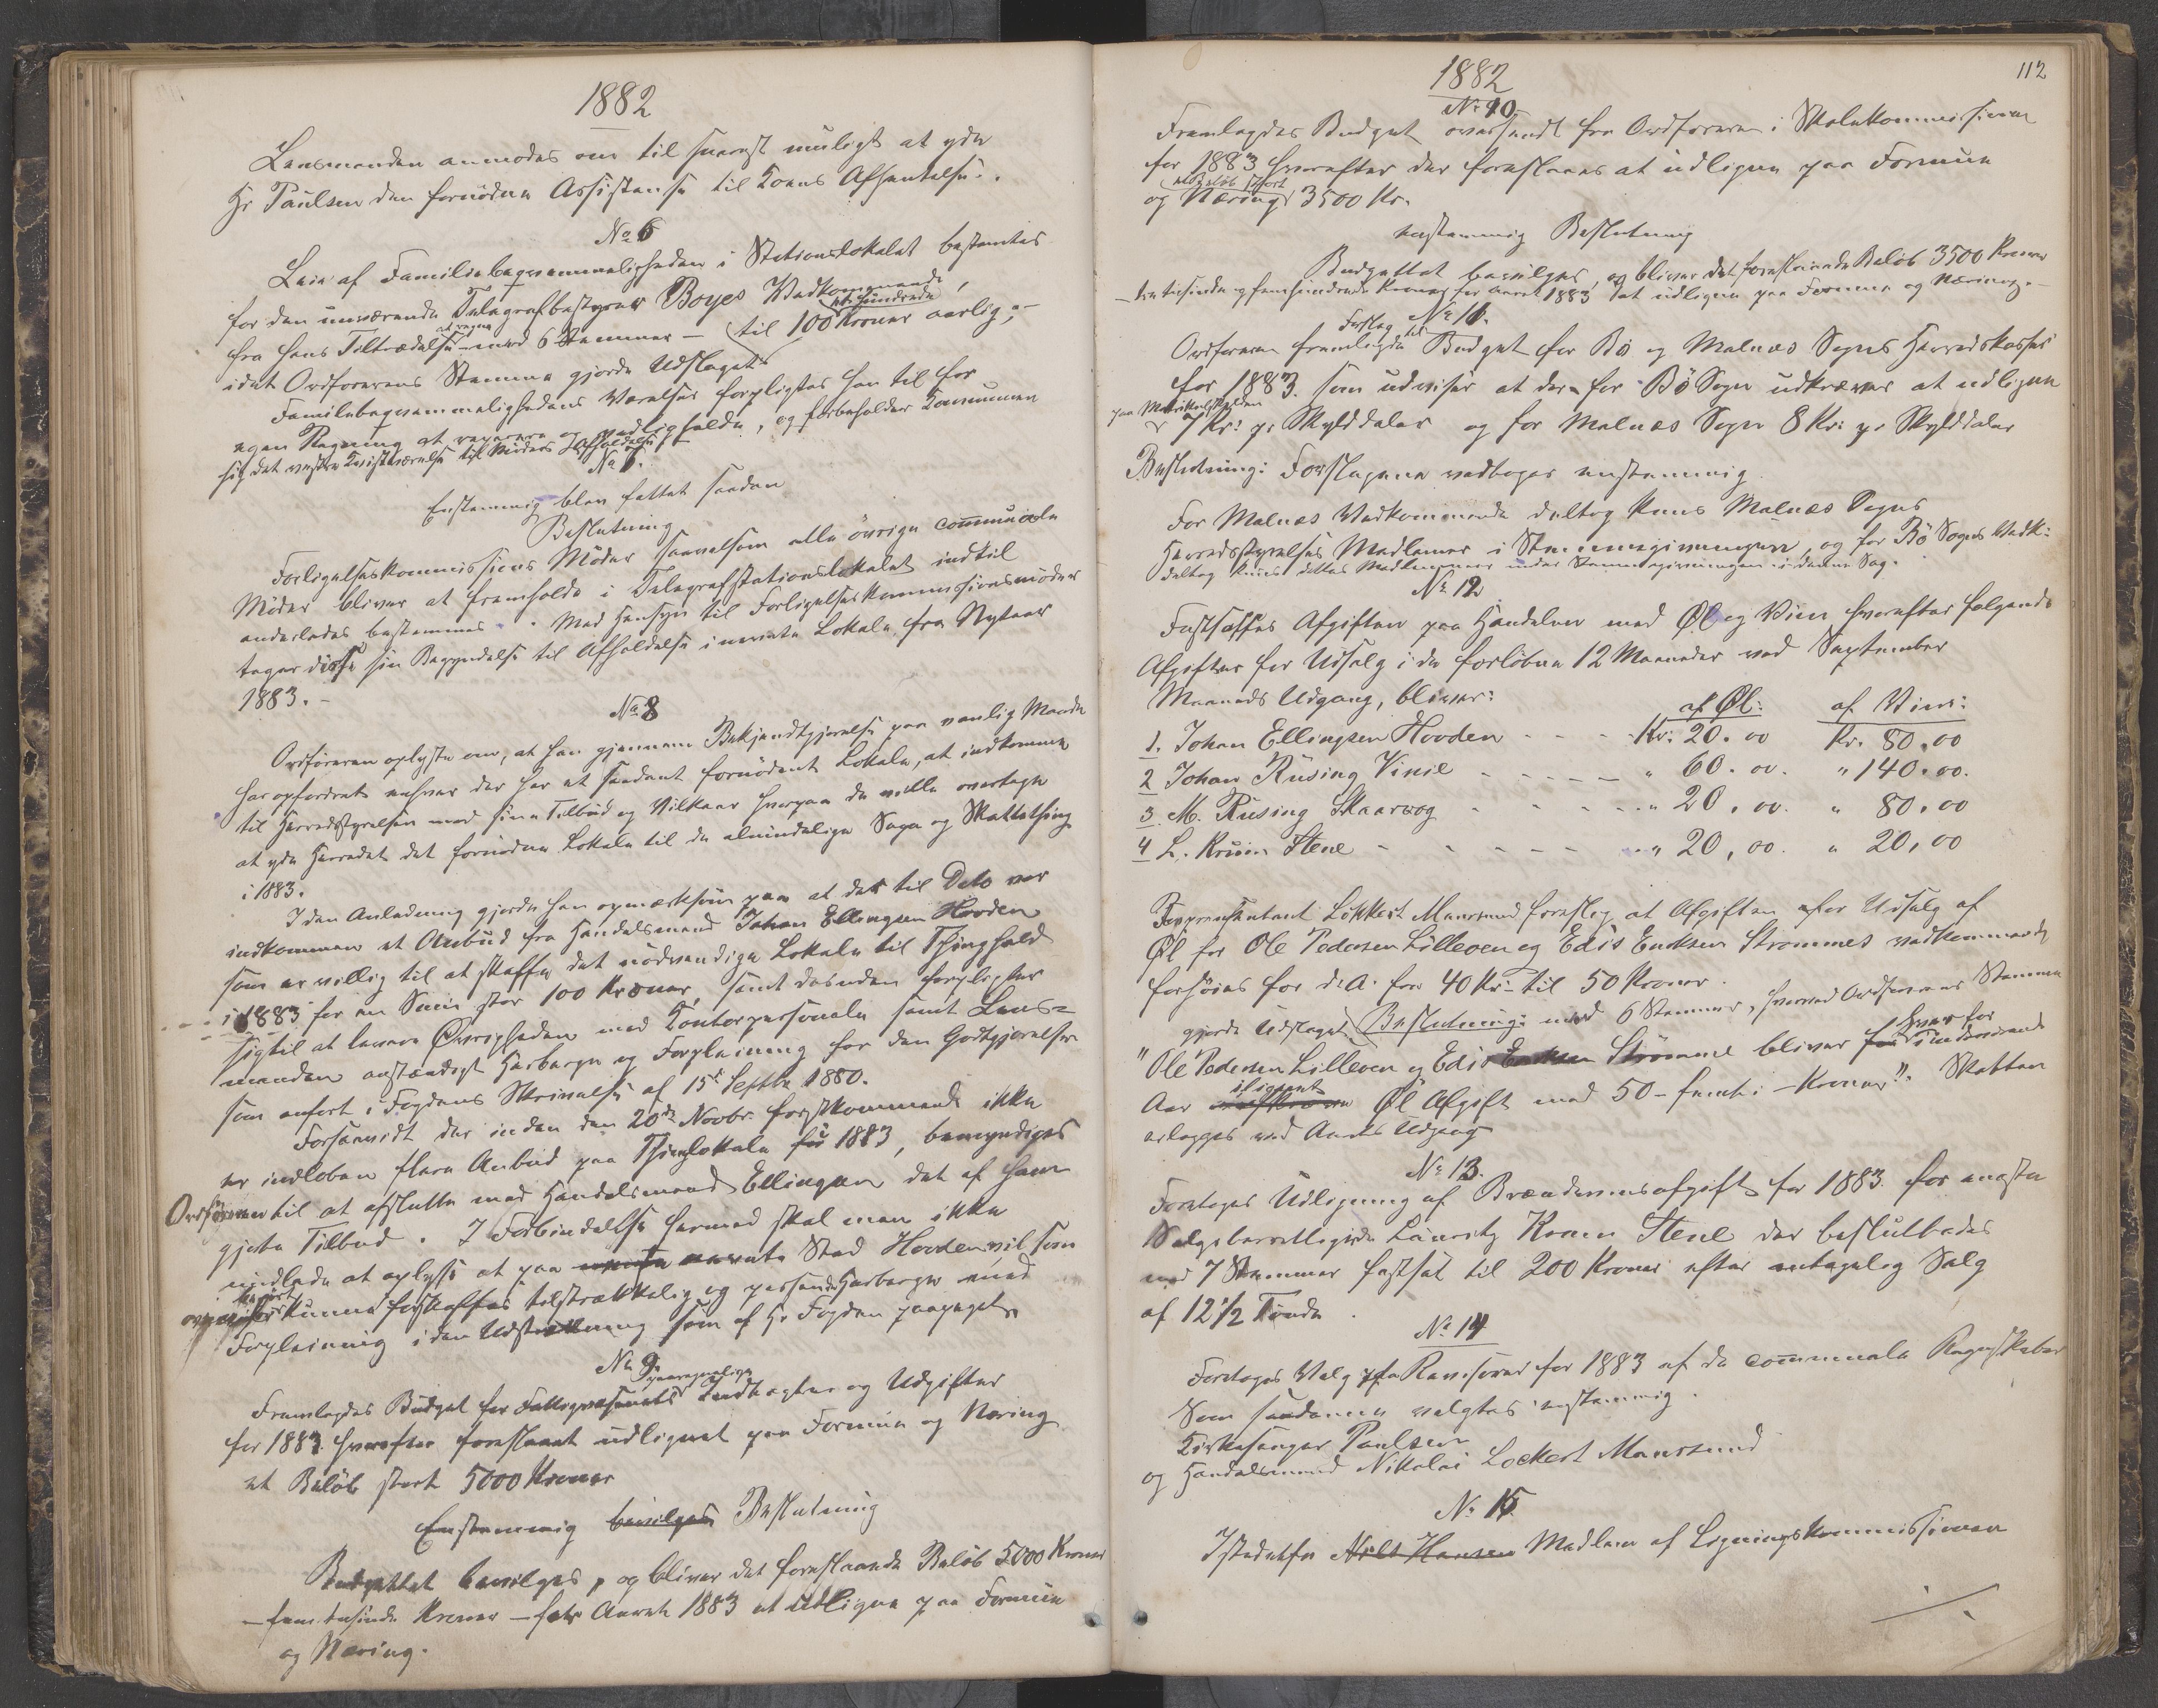 1882
Lensmanden anmodes om til snarest muligt at yde
Hr Paulsen den fornödne Assistense til Toens Afhentelse.
No 6
Leie af Familiebeqvemmeligheden i Stationslokalet bestemtes
for den nuværende Telegrafbestyrer Boyes Vedkommende,
fra hans Tiltrædelse at regne med 6 Stemmer – til 100 et hundrede Kroner aarlig, –
idet Ordførerens Stemme gjorde Udslaget.
Familiebeqvemmelighedens Værelser forpligtes han til for
egen Regning at reparere og vedligeholde, og forbeholder Kommunen
sig det vestre Qvistværelse til Møders Afholdelse
No 7.
Enstemmig blev fattet saadan
Beslutning
Forligelseskommissions Möder saavelsom alle övrige communale
Möder bliver at fremholde i Telegrafstationslokalet indtil
anderledes bestemmes. Med Hensyn til Forligelseskommissionsmöder
tager disse sin Begyndelse til Afholdelse i nævnte Lokale fra Nytaar
1883. –
No 8
Ordføreren oplyste om, at han gjennem Bekjendtgjørelse paa vanlig Maade
har opfordret enhver der har et saadant fornödent Lokale, at indkomme
til Herredsstyrelsen med sine Tilbud og Vilkaar hvorpaa de ville overtage
at yde Herredet det fornödne Lokale til de almindelige Sage og Skattething
i 1883.
I den Anledning gjorde han opmærksom paa at der til Dato var
indkommen et Anbud fra Handelsmand Johan Ellingsen Hovden
som er villig til at skaffe det nödvendige Lokale til Thinghold
i 1883 for en Sum stor 100 Kroner, samt desuden forpligter
sig til at levere Øvrigheden med Kontorpersonale samt Lens=
manden anstændigt Herberge og Forpleining for den Godtgjørelse
som anført i Fogdens Skrivelse af 15de Septbr 1880.
Forsaavidt der inden den 20de Novbr. førstkommende ikke
er indløben flere Anbud paa Thinglokale for 1883, bemyndiges
Ordføreren til at afslutte med Handelsmand Ellingsen det af ham
gjorte Tilbud. I Forbindelse hermed skal man ikke
undlade at oplyse at paa nævnte Sted Hovden, vil som
kunne forskaffes tilstrækkelig og passende Herberge med
Forpleining i den Udstrækning som af Hr Fogden paapeget.
No 9.
Fremlagdes Budget for Fattigvæsenets Indtægter og Udgifter
for 1883. hvorefter foreslaaet udlignet paa Formue og Næring
et Beløb stort 5000 Kroner
Enstemmig bevilges Beslutning
Budgettet bevilges, og bliver det foreslaaede Beløb 5000 Kroner
– fem tusinde Kroner – for Aaret 1883 at udligne paa Formue
og Næring.
112
1882
No 10
Fremlagdes Budget oversendt fra Ordføreren i Skolekommissionen
for 1883 hvorefter der foreslaaes at udligne paa Formue
og Næring et Beløb stort 3500 Kr.
enstemmig Beslutning
Budgettet bevilges, og bliver det foreslaaede Beløb 3500 Kroner
– tretusinde og femhundrede Kroner for Aaret 1883 at udligne paa Formue og Næring. –
No 11.
Ordføreren fremlagde Forslag til Budget for Bö og Malnæs Sogns Herredskasser
for 1883. som udviser at der for Bö Sogn udkræves at udligne
paa Matrikulskylden
7 Kr: pr Skylddaler og for Malnæs Sogn 8 Kr: pr Skylddaler
Beslutning: Forslagene vedtoges enstemmig
For Malnæs Vedkommende deltog kuns Malnæs Sogns
Herredsstyrelses Medlemer i Stemmegivningen, og for Bö Sogns Vedk:
deltog kuns dettes Medlemmer under Stemmegivningen i denne Sag.
No 12
Fastsattes Afgiften paa Handelen med Øl og Vin hvorefter følgende
Afgifter for Udsalg i de forløbne 12 Maaneder ved September
Maaneds Udgang, bliver:
af Øl: af Vin:
1. Johan Ellingsen Hovden - - - Kr: 20.00 Kr. 80.00
2 Johan Rüsing Vinie - - - - - " 60.00. " 140.00.
3. M. Rüsing Skaarvog - - - - - " 20.00. " 80.00
4 L. Krum Stene - - - - - " 20,00. " 20,00
Representant Lökkert Maursund foreslog at Afgiften for Udsalg af
Øl for Ole Pedersen Lilleven og Edis Enoksen Strømmes vedkommende
forhöies for d. A. fra 40 Kr: til 50 Kroner.
gjorde Udslaget Beslutning: med 6 Stemmer, hvorved Ordførerens Stemme
"Ole Pedersen Lilleven og Edis Enoksen Strömme bliver hver for indeværende
Aar ilignet Øl Afgift med 50 – femti – Kroner". Skatten
erlægges ved Aarets Udgang
No 13.
Foretoges Udligning af Brændevinsafgift for 1883. for eneste
Salgsberettigede Lauritz Krum Stene der besluttedes
med 7 Stemmer fastsat til 200 Kroner efter antagelig Salg
af 12 1/2 Tønde
No 14
Foretoges Valg paa Revisorer for 1883 af de communale Regnskaber
Som saadanne valgtes enstemmig.
Kirkesanger Paulsen
og Handelsmand Nikolai Lockert Maursund
No 15
Istedetfor Nils Hansen Medlem af Ligningskommissionen